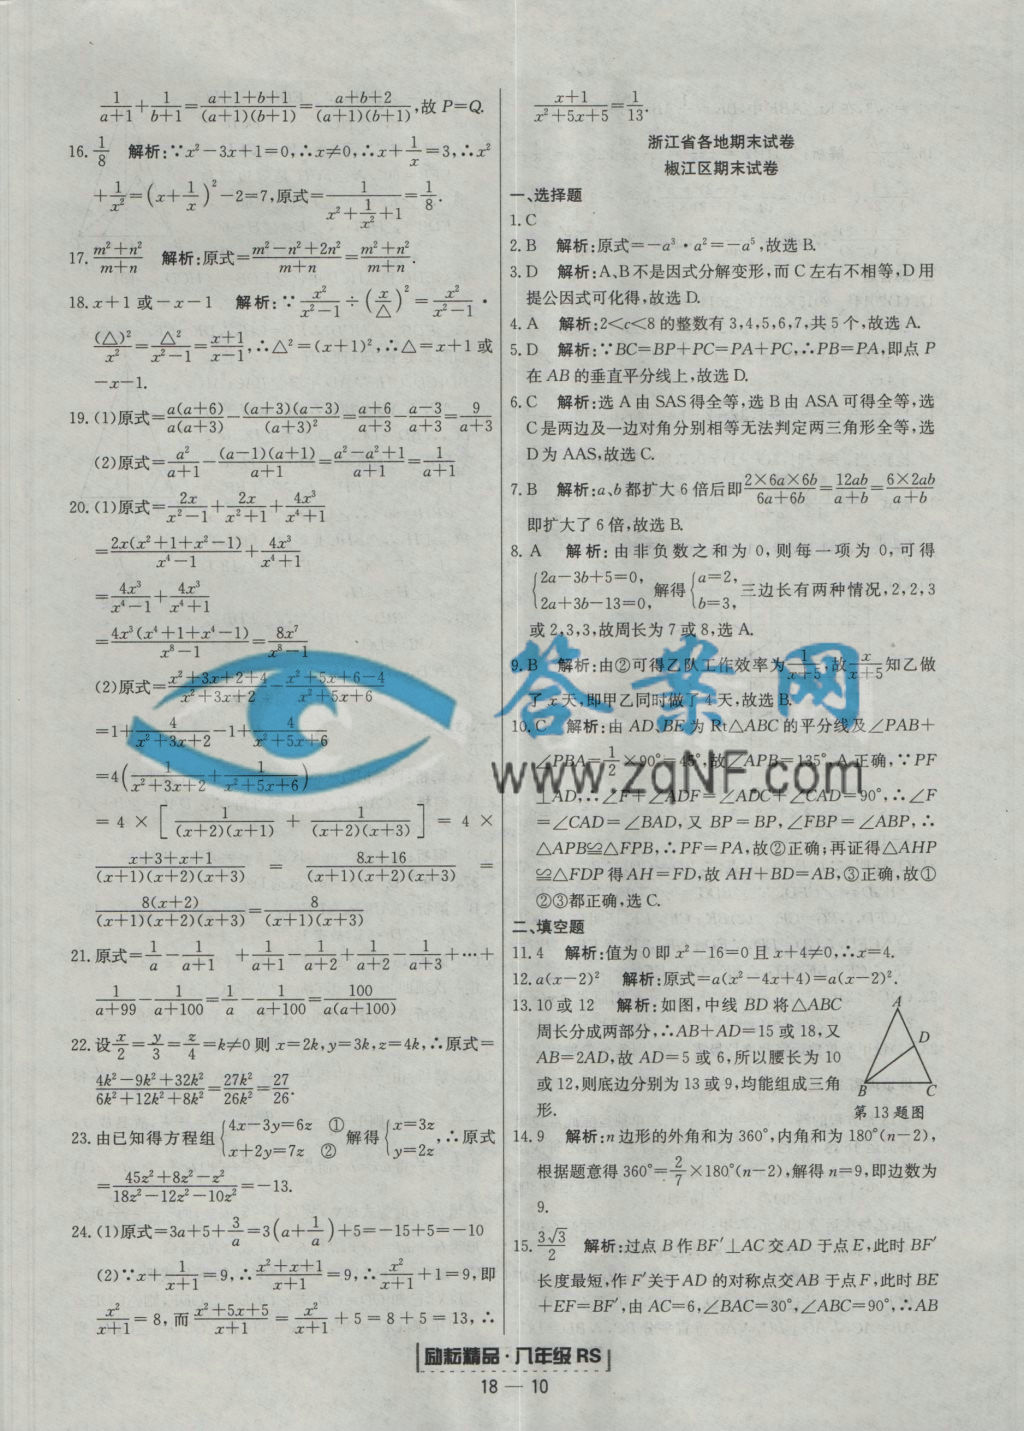 1/(a+1)+1/(b+1)=(a+1+b+1)/((a+1)(b+1))=(a+b+2)/((a+1)(b+1)),故 P=Q.
16. 1/8 解析:∵x²−3x+1=0,∴x≠0,∴x+1/x=3,∴x²
+1/x²=(x+1/x)²−2=7,原式=1/(x²+1/x²+1)=1/8.
17. (m²+n²)/(m+n) 解析:原式=(m²−n²+2n²)/(m+n)=(m²+n²)/(m+n).
18. x+1 或 −x−1 解析:∵x²/(x²−1)÷(x/△)²=x²/(x²−1)·
(△)²/x²=△²/(x²−1)=(x+1)/(x−1),∴△²=(x+1)²,∴△=x+1或
−x−1.
19. (1)原式=a(a+6)/(a(a+3))−(a+3)(a−3)/(a+3)²=(a+6)/(a+3)−(a−3)/(a+3)=9/(a+3)
(2)原式=a²/(a+1)−(a−1)(a+1)/(a+1)=(a²−a²+1)/(a+1)=1/(a+1)
20. (1)原式=2x/(x²−1)+2x/(x²+1)+4x³/(x⁴+1)
=2x(x²+1+x²−1)/(x⁴−1)+4x³/(x⁴+1)
=4x³/(x⁴−1)+4x³/(x⁴+1)
=4x³(x⁴+1+x⁴−1)/(x⁸−1)=8x⁷/(x⁸−1)
(2)原式=(x²+3x+2+4)/(x²+3x+2)−(x²+5x+6−4)/(x²+5x+6)
=1+4/(x²+3x+2)−1+4/(x²+5x+6)
=4(1/(x²+3x+2)+1/(x²+5x+6))
=4×[1/((x+2)(x+1))+1/((x+2)(x+3))]=4×
(x+3+x+1)/((x+1)(x+2)(x+3))=(8x+16)/((x+1)(x+2)(x+3))=
8(x+2)/((x+1)(x+2)(x+3))=8/((x+1)(x+3))
21. 原式=1/a−1/(a+1)+1/(a+1)−1/(a+2)+1/(a+2)−1/(a+3)+…+
1/(a+99)−1/(a+100)=1/a−1/(a+100)=100/(a(a+100))
22. 设x/2=y/3=z/4=k≠0则 x=2k,y=3k,z=4k,∴原式=
(4k²−9k²+32k²)/(6k²+12k²+8k²)=27k²/26k²=27/26.
23. 由已知得方程组{4x−3y=6z ① x+2y=7z ② 解得{x=3z y=2z,∴原式
=(45z²+8z²−z²)/(18z²−12z²−10z²)=−13.
24. (1)原式=3a+5+3/a=3(a+1/a)+5=−15+5=−10
(2)∵x+1/(x+1)=9,∴(x²+x+1)/(x+1)=9,∴x²/(x+1)+1=9,即
x²/(x+1)=8,而(x²+5x+5)/(x+1)=x²/(x+1)+5=8+5=13,∴
(x+1)/(x²+5x+5)=1/13.
浙江省各地期末试卷
椒江区期末试卷
一、选择题
1. C
2. B 解析:原式=−a³·a²=−a⁵,故选 B.
3. D 解析:A、B不是因式分解变形,而C左右不相等,D用
提公因式可化得,故选 D.
4. A 解析:2<c<8的整数有3,4,5,6,7,共5个,故选 A.
5. D 解析:∵BC=BP+PC=PA+PC,∴PB=PA,即点P
在AB的垂直平分线上,故选 D.
6. C 解析:选A由SAS得全等,选B由ASA可得全等,选
C是两边及一边对角分别相等无法判定两三角形全等,选
D为AAS,故选 C.
7. B 解析:a、b都扩大6倍后即(2×6a×6b)/(6a+6b)=12ab/(a+b)=(6×2ab)/(a+b)
即扩大了6倍,故选 B.
8. A 解析:由非负数之和为0,则每一项为0,可得
{2a−3b+5=0, 2a+3b−13=0, 解得{a=2, b=3, 三边长有两种情况,2,2,3
或2,3,3,故周长为7或8,选 A.
9. B 解析:由②可得乙队工作效率为1/(x+5),故x/(x+5)知乙做
了x天,即甲乙同时做了4天,故选 B.
10. C 解析:由AD、BE为Rt△ABC的平分线及∠PAB+
∠PBA=1/2×90°=45°,故∠APB=135°,A正确,∵PF
⊥AD,∴∠F+∠ADF=∠ADC+∠CAD=90°,∴∠F
=∠CAD=∠BAD,又BP=BP,∠FBP=∠ABP,∴
△APB≌△FPB,∴PF=PA,故②正确;再证得△AHP
≌△FDP得AH=FD,故AH+BD=AB,③正确,故①
②③都正确,选 C.
二、填空题
11. 4 解析:值为0即x²−16=0且x+4≠0,∴x=4.
12. a(x−2)² 解析:原式=a(x²−4x+4)=a(x−2)².
13. 10或12 解析:如图,中线BD将△ABC
周长分成两部分,∴AB+AD=15或18,又
AB=2AD,故AD=5或6,所以腰长为10
或12,则底边分别为13或9,均能组成三角
形.
A
D
B C
第13题图
14. 9 解析:n边形的外角和为360°,内角和为180°(n−2),
根据题意得360°=2/7×180°(n−2),解得n=9,即边数为
9.
15. 3√3/2 解析:过点B作BF′⊥AC交AD于点E,此时BF′
长度最短,作F′关于AD的对称点交AB于点F,此时BE
+EF=BF′,由AC=6,∠BAC=30°,∠ABC=90°,∴AB
答案网
www.zqNF.com
励耘精品·八年级 RS
18 — 10